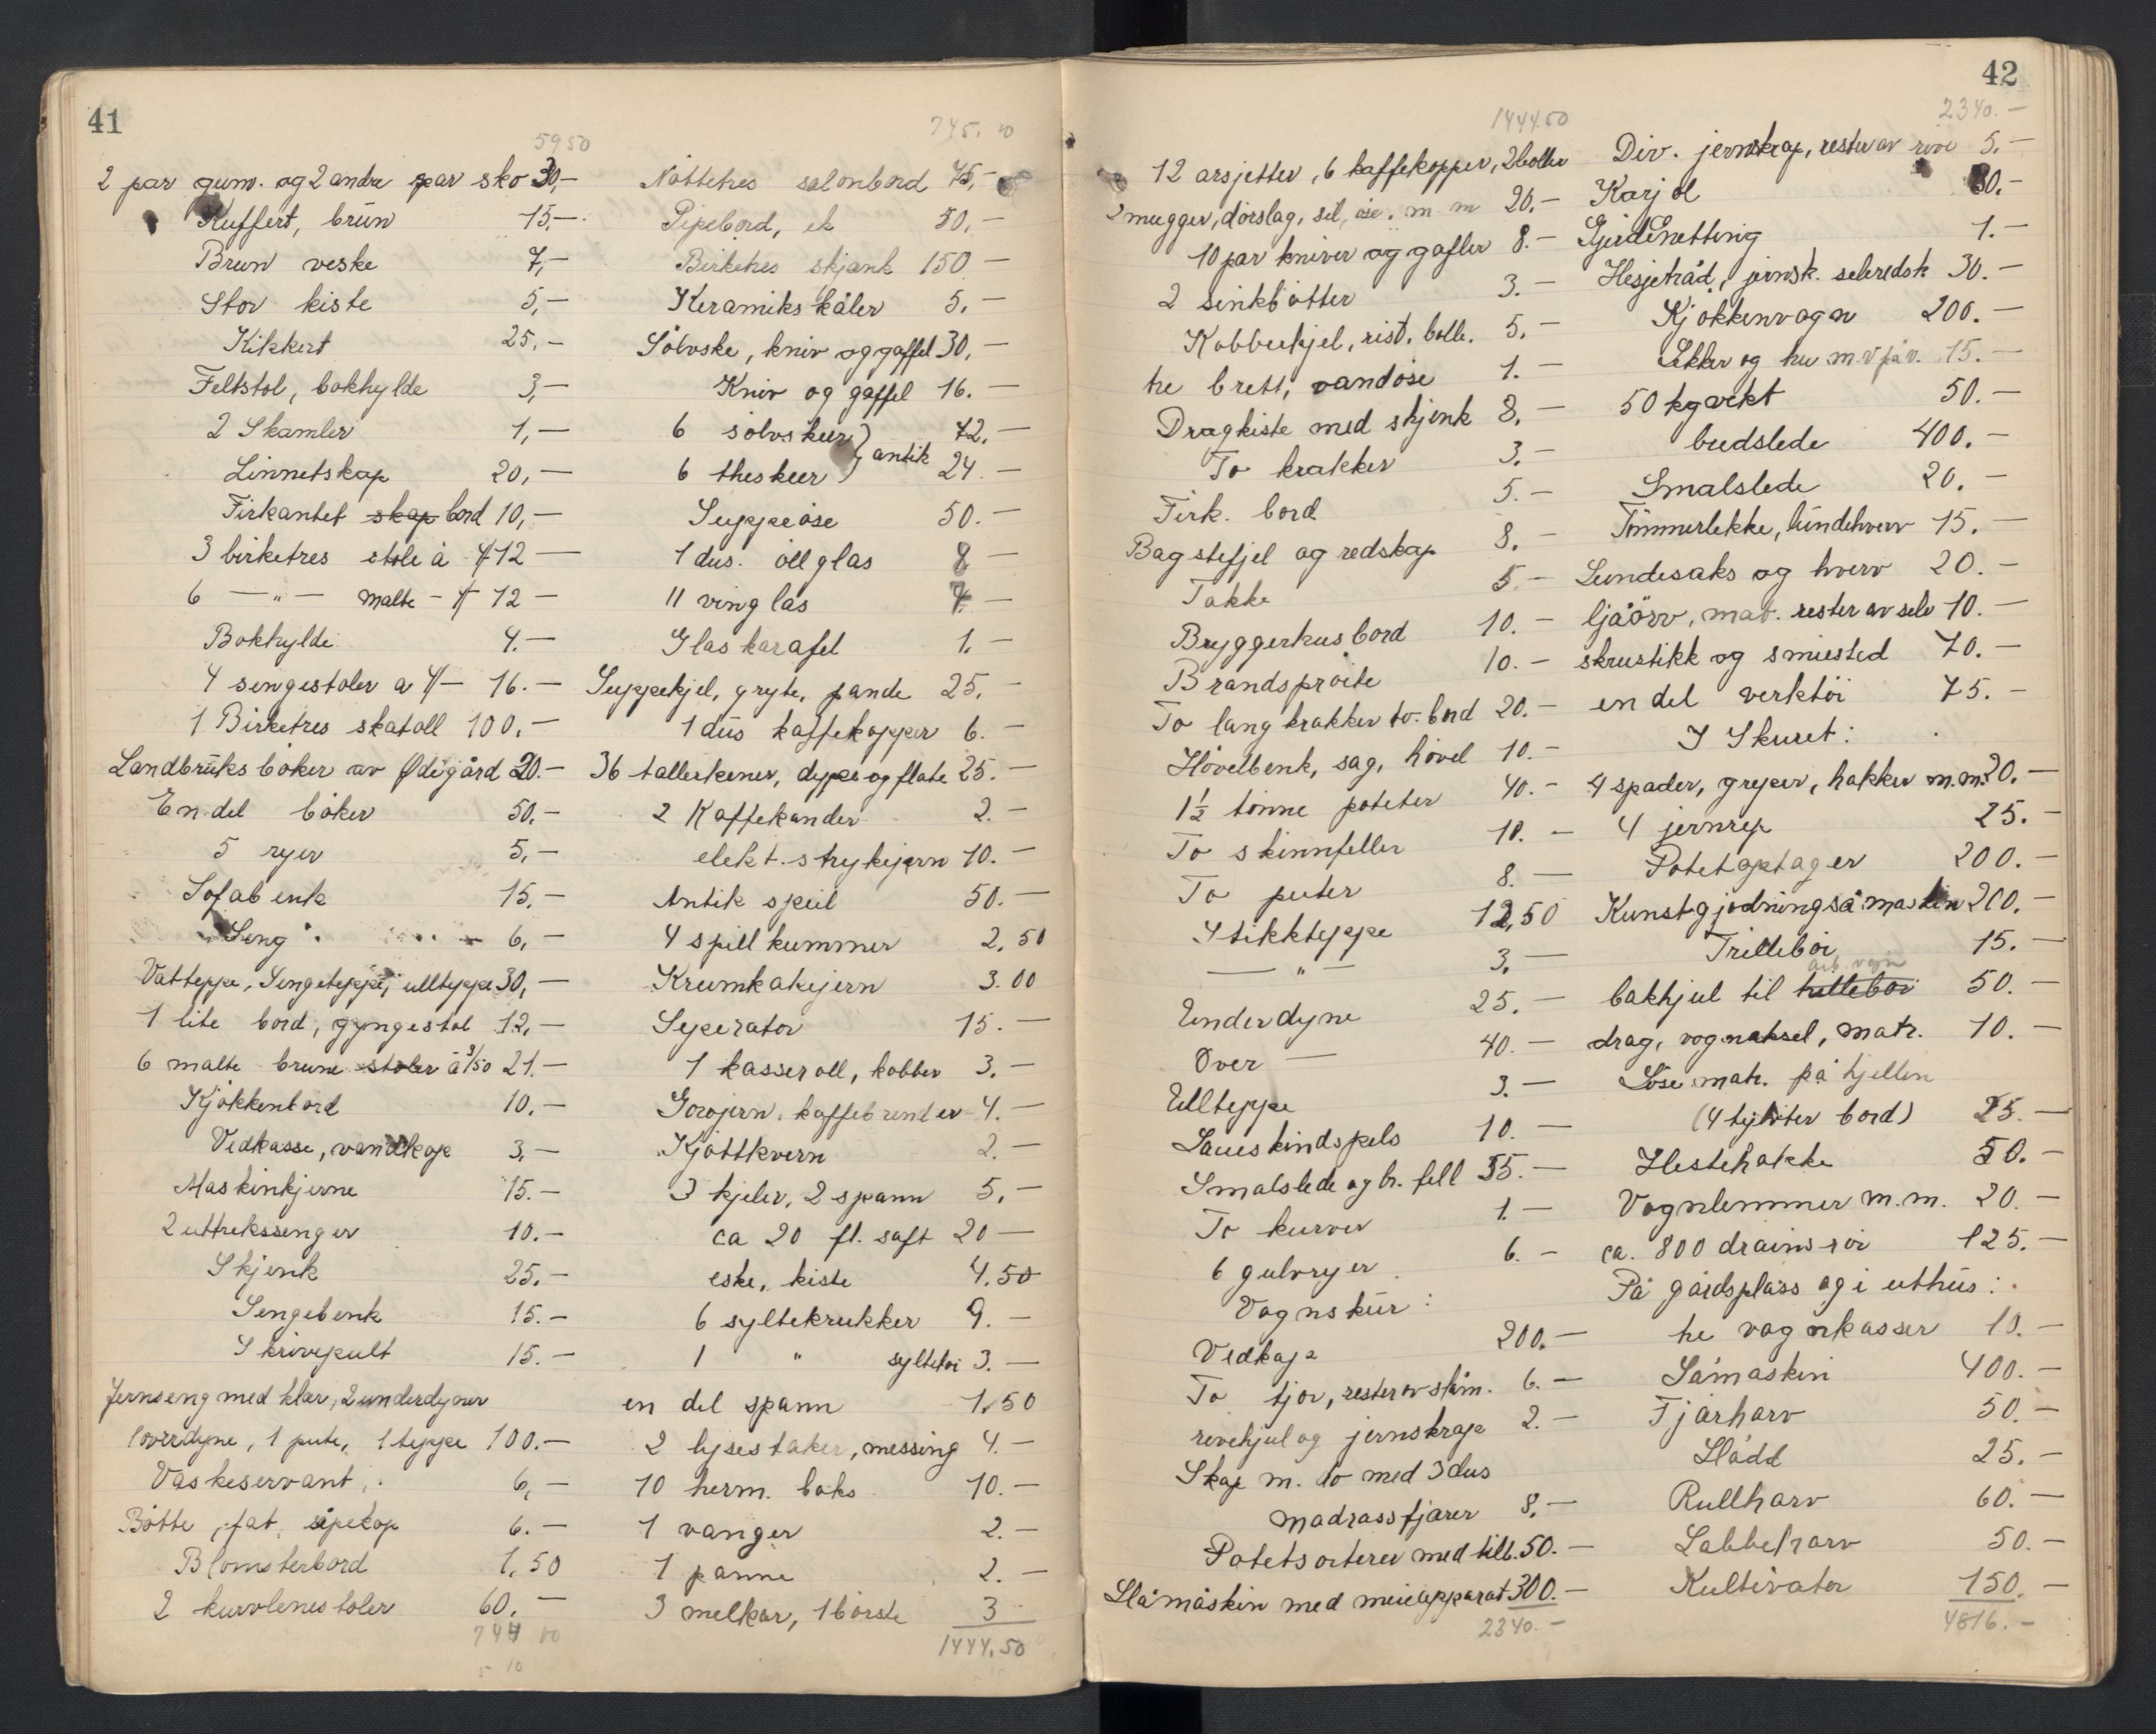 41
5950
2 par gum. og 2 andre par sko 30,—
Kuffert, brun 15,—
Brun veske 7,—
Stor kiste 5,—
Kikkert 25,—
Feltstol, bokhylde 3,—
2 Skamler 1,—
Linnetskap 20,—
Firkantet skap bord 10,—
3 birketres stole à 4 12 —
6 —„— malte - 12 —
Bokhylde 4.—
4 sengestoler a 4/— 16.—
1 Birketres skatoll 100.—
Landbruks böker av Ødegård 20.—
En del böker 50,—
5 ryer 5,—
Sofabenk 15,—
Seng 6,—
Vatteppe, Sengeteppe, ullteppe 30,—
1 lite bord, gyngestol 12,—
6 malte brune stoler à 3/50 21.—
Kjökkenbord 10.—
Vedkasse, vandkop 3,—
Maskinkjerne 15.—
2 uttrekssenger 10.—
Skjenk 25.—
Sengebenk 15.—
Skrivepult 15.—
Jernseng med klær, 2 underdyner
1 overdyne, 1 pute, 1 teppe 100.—
Vaskeservant 6,—
Bötte, fat, såpekop 6.—
Blomsterbord 1,50
2 kurvlenestoler 60.—
744 00
5 10
745.
Nöttetres salonbord 75,—
Pipebord, ek 50,—
Birketres skjænk 150.—
Keramikskåler 5,—
Sölvske, kniv og gaffel 30,—
Kniv og gaffel 16.—
6 sölvskeer 72,—
antik
6 theskeer 24.—
Suppeöse 50.—
1 dus. öllglas 8 —
11 vinglas 7 —
Glaskarafel 1.—
Suppekjel, gryte, pande 25.—
1 dus kaffekopper 6.—
36 tallerkener, dype og flate 25.—
2 Kaffekander 2.—
elekt. strykejern 10.—
Antik speil 50.—
4 spillkummer 2,50
Krumkakejern 3.00
Seperator 15.—
1 kasseroll, kobber 3.—
Gorojern, kaffebrenner 4.—
Kjöttkvern 2.—
3 kjeler, 2 spann 5,—
ca 20 fl. saft 20 —
eske, kiste 4.50
6 syltekrukker 9.—
1 „ syltetöi 3.—
en del spann 1,50
2 lysestaker, messing 4.—
10 herm. boks 10.—
1 vanger 2.—
1 panne 2.—
3 melkar, 1 börste 3
1444.50
42
1444.50
12 arsjetter, 6 kaffekopper, 2 boller
2 mugger, dörslag, sil, öse. m m 20,—
10 par kniver og gafler 8.—
2 sinkbötter 3.—
Kobberkjel, rist, bolle. 5,—
tre brett, vandöse 1.—
Dragkiste med skjenk 8,—
To krakker 3,—
Firk. bord 5.—
Bagstefjel og redskap 8.—
Takke 5—
Bryggerhusbord 10.—
Brandspröite 10.—
To lang krakker to. bord 20.—
Hövelbenk, sag, hövel 10.—
1½ tönne poteter 40.—
To skinnfeller 10.—
To puter 8.—
4 stikkteppe 12,50
—„— 3.—
Underdyne 25.—
Over — 40.—
Ullteppe 3.—
Saueskindspels 10.—
Smalslede og br. fell 55.—
To kurver 1.—
6 gulvryer 6.—
Vognskur:
Vedkape 200.—
To tjor, rester av slåm. 6.—
rivehjul og jernskrap 2.—
Skap m. to med 3 dus
madrassfjærer 8,—
Potetsorterer med tilb. 50.—
Slåmaskin med meieapparat 300.—
2340.—
2340.—
Div. jernskrap, rester av rive 5.—
Karjol 30.—
Gjerdenetting 1.—
Hesjetråd, jernsk. seleredsk 30.—
Kjökkenvogn 200.—
Sekker og hu m.v på v. 15.—
50 kg vekt 50.—
budslede 400.—
Smalslede 20.—
Tömmerlekke, lundehverv 15.—
Lundesaks og hverv 20.—
ljåörv, mat. rester av sele 10.—
skrustikk og smiested 70.—
en del verktöi 75.—
I Skuret:
4 spader, greper, hakker m.m. 20.—
4 jernrep 25.—
Potetoptager 200.—
Kunstgjödningsåmaskin 200.—
Trillebör 15.—
arb. vogn
bakhjul til trillebör 50.—
drag, vognaksel, matr. 10.—
Löse matr. på hjellen
(4 tylvter bord) 25.—
Hestehakke 50.—
Vognlemmer m.m. 20.—
ca. 800 drainsrör 125.—
På gårdsplass og i uthus:
tre vognkasser 10.—
Såmaskin 400.—
Fjærharv 50.—
Slådd 25.—
Rullharv 60.—
Labbeharv 50.—
Kultivator 150.—
4816.—